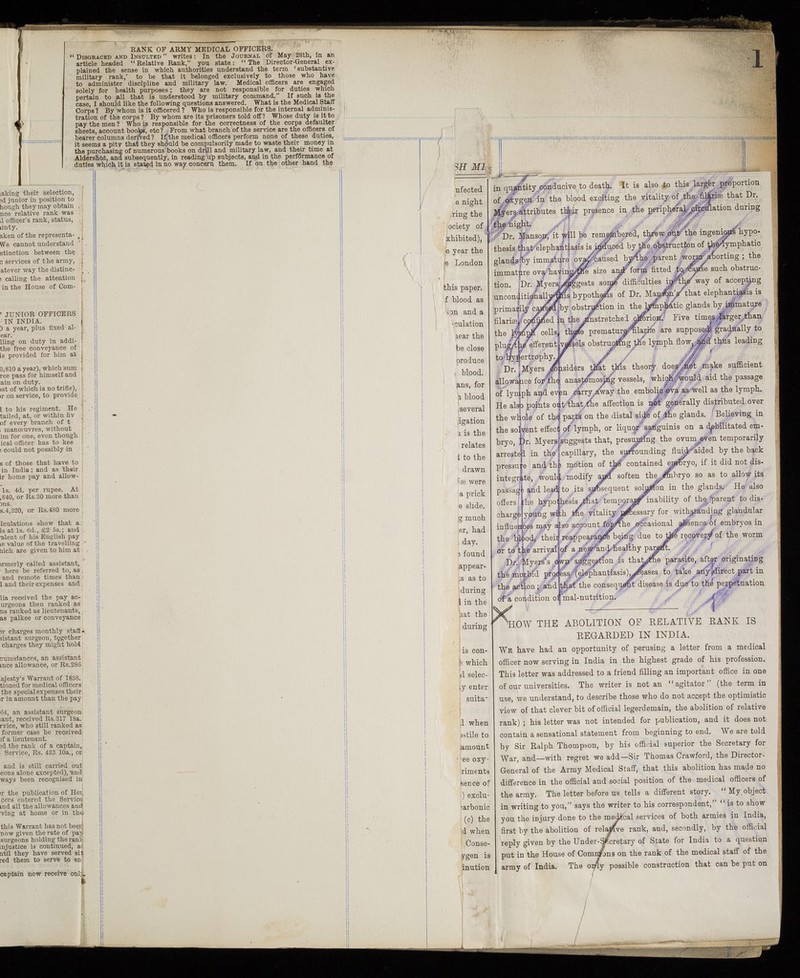 1
RANK OF ARMY MEDICAL OFFICERS.
"DISGRACED AND INSULTED" writes: In the JOURNAL of May 28th, in an
article headed "Relative Rank," you state: "The Director-General ex-
plained the sense in which authorities understand the term 'substantive
military rank,' to be that it belonged exclusively to those who have
to administer discipline and military law. Medical officers are engaged
solely for health purposes; they are not responsible for duties which
pertain to all that is understood by military command." If such is the
case, I should like the following questions answered. What is the Medical Staff
Corps? By whom is it officered? Who is responsible for the internal adminis-
tration of the corps? By whom are its prisoners told off? Whose duty is it to
pay the men? Who is responsible for the correctness of the corps defaulter
sheets, account books, etc? From what branch of the service are the officers of
bearer columns derived? If the medical officers perform none of these duties,
it seems a pity that they should be compulsorily made to waste their money in
the purchasing of numerous books on drill and military law, and their time at
Aldershot, and subsequently, in reading up subjects, and in the performance of
duties which it is stated in no way concern them. If on the other hand the
aking their selection,
d junior in position to
hough they may obtain
nce relative rank was
l officer's rank, status,
inty.
aken of the representa-
We cannot understand
tinction between the
services of the army,
atever way the distinc-
calling the attention
in the House of Com-
JUNIOR OFFICERS
IN INDIA.
a year, plus fixed al-
ear.
lling on duty in addi-
the free conveyance of
is provided for him at
3,810 a year), which sum
ree pass for himself and
ain on duty.
st of which is no trifle),
or on service, to provide
l to his regiment. He
tailed, at, or within fiv
of every branch of t
manœuvres, without
im for one, even though
ical officer has to kee
could not possibly in
s of those that have to
in India; and as their
ir home pay and allow-
1s. 4d. per rupee. At
,840, or Rs.30 more than
ons.
s.4,320, or Rs.480 more
lculations show that a
is at 1s. 6d., £2 5s.; and
valent of his English pay
e value of the travelling
hich are given to him at
ormerly called assistant,
here be referred to, as
and remote times than
l and their expenses and
ia received the pay ac-
urgeons then ranked as
ns ranked as lieutenants,
as palkee or conveyance
er charges monthly staff
sistant surgeon, together
charges they might hold
cumstances, an assistant
nce allowance, or Rs.286
ajesty's Warrant of 1858,
tioned for medical officers
the special expenses their
r in amount than the pay
64, an assistant surgeon
ant, received Rs.317 18a.
rvice, who still ranked as
former case he received
of a lieutenant.
d the rank of a captain,
Service, Rs. 423 10a., or
and is still carried out
eons alone excepted), and
ways been recognised in
r the publication of Her
cers entered the Service
and all the allowances and
ving at home or in the
this Warrant has not been
now given the rate of pay
surgeons holding the rank
njustice is continued, a
ntil they have served si
red them to serve to en
captain now receive onl
SH M
nfected
o night
ring the
ociety of
xhibited),
o year the
e London
this paper.
f blood as
on and a
culation
ear the
be close
produce
blood.
ans, for
a blood
several
igation
s is the
relates
l to the
drawn
e were
a prick
e slide.
g much
er, had
day.
found
appear-
s as to
during
l in the
at the
during
is con-
which
d selec-
y enter
suita-
l when
stile to
amount
ee oxy-
riments
sence of
) exclu-
arbonic
(c) the
d when
Conse-
ygen is
inution
in quantity conducive to death. It is also to this larger proportion
of oxygen in the blood exciting the vitality of the filariæ that Dr.
Myers attributes their presence in the peripheral circulation during
the night.
Dr. Manson, it will be remembered, threw out the ingenious hypo-
thesis that elephantiasis is induced by the obstruction of the lymphatic
glands by immature ova, caused by the parent worm aborting; the
immature ova having the size and form fitted to cause such obstruc-
tion. Dr. Myers suggests some difficulties in the way of accepting
unconditionally this hypothesis of Dr. Manson's that elephantiasis is
primarily caused by obstruction in the lymphatic glands by immature
filariæ, confined in the unstretched chorion. Five times larger than
the lymph cells, these premature filariæ are supposed gradually to
plug the efferent vessels obstructing the lymph flow, and thus leading
to hypertrophy.
Dr. Myers considers that this theory does not make sufficient
allowance for the anastomosing vessels, which would aid the passage
of lymph and even carry away the embolic ova as well as the lymph.
He also points out that the affection is not generally distributed over
the whole of the parts on the distal side of the glands. Believing in
the solvent effect of lymph, or liquor sanguinis on a debilitated em-
bryo, Dr. Myers suggests that, presuming the ovum even temporarily
arrested in the capillary, the surrounding fluid aided by the back
pressure and the motion of the contained embryo, if it did not dis-
integrate, would modify and soften the embryo so as to allow its
passage and lead to its subsequent solution in the glands. He also
offers the hypothesis that temporary inability of the parent to dis-
charge young with the vitality necessary for withstanding glandular
influences may also account for the occasional absence of embryos in
the blood, their reappearance being due to the recovery of the worm
or to the arrival of a new and healthy parent.
Dr. Myers's own suggestion is that the parasite, after originating
the morbid process (elephantfasis), ceases to take any direct part in
the action; and that the consequent disease is due to the perpetuation
of a condition of mal-nutrition.
HOW THE ABOLITION OF RELATIVE RANK IS
REGARDED IN INDIA.
WE have had an opportunity of perusing a letter from a medical
officer now serving in India in the highest grade of his profession.
This letter was addressed to a friend filling an important office in one
of our universities. The writer is not an "agitator" (the term in
use, we understand, to describe those who do not accept the optimistic
view of that clever bit of official legerdemain, the abolition of relative
rank); his letter was not intended for publication, and it does not
contain a sensational statement from beginning to end. We are told
by Sir Ralph Thompson, by his official superior the Secretary for
War, and—with regret we add—Sir Thomas Crawford, the Director-
General of the Army Medical Staff, that this abolition has made no
difference in the official and social position of the medical officers of
the army. The letter before us tells a different story. "My object
in writing to you," says the writer to his correspondent, "is to show
you the injury done to the medical services of both armies in India,
first by the abolition of relative rank, and, secondly, by the official
reply given by the Under-Secretary of State for India to a question
put in the House of Commons on the rank of the medical staff of the
army of India. The only possible construction that can be put on